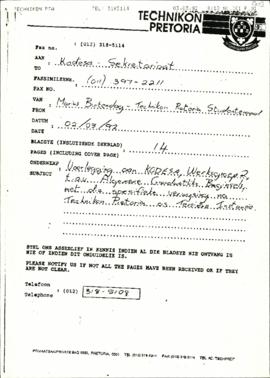 TECHNIKON PTA TEL-3185114
TECHNIKON
PRETORIA
Fax no. : (012) 318-5114
AAN
TO Kodesa - Sekretariaat
FAKSIMILEENR. (011) 397-2211
FAX NO.
VAN
FROM
DATUM
DATE 02/03/92
BLADSYE (INSLUITENDE DEKBLAD) 14
PAGES (INCLUDING COVER PAGE)
ONDERWERP Voorlegging aan KODESA, Werksgroep 2,
SUBJECT
i.s.v. Algemene Grondwetlike Beginsels,
met die spesifieke verwysing na
Technikon Pretoria as Tersiêre
STEL ONS ASSEBLIEF IN KENNIS INDIEN AL DIE BLADSYE NIE ONTVANG
IS NIE OF INDIEN DIT ONDUIDELIK IS.
PLEASE NOTIFY US IF NOT ALL THE PAGES HAVE BEEN RECEIVED OR IF THEY
ARE NOT CLEAR.
Telefoon
Telephone : (012)